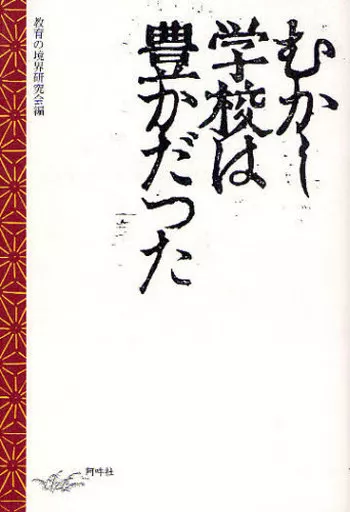 むかし
学校は
豊かだつた
教育の境界研究会編
阿吽社